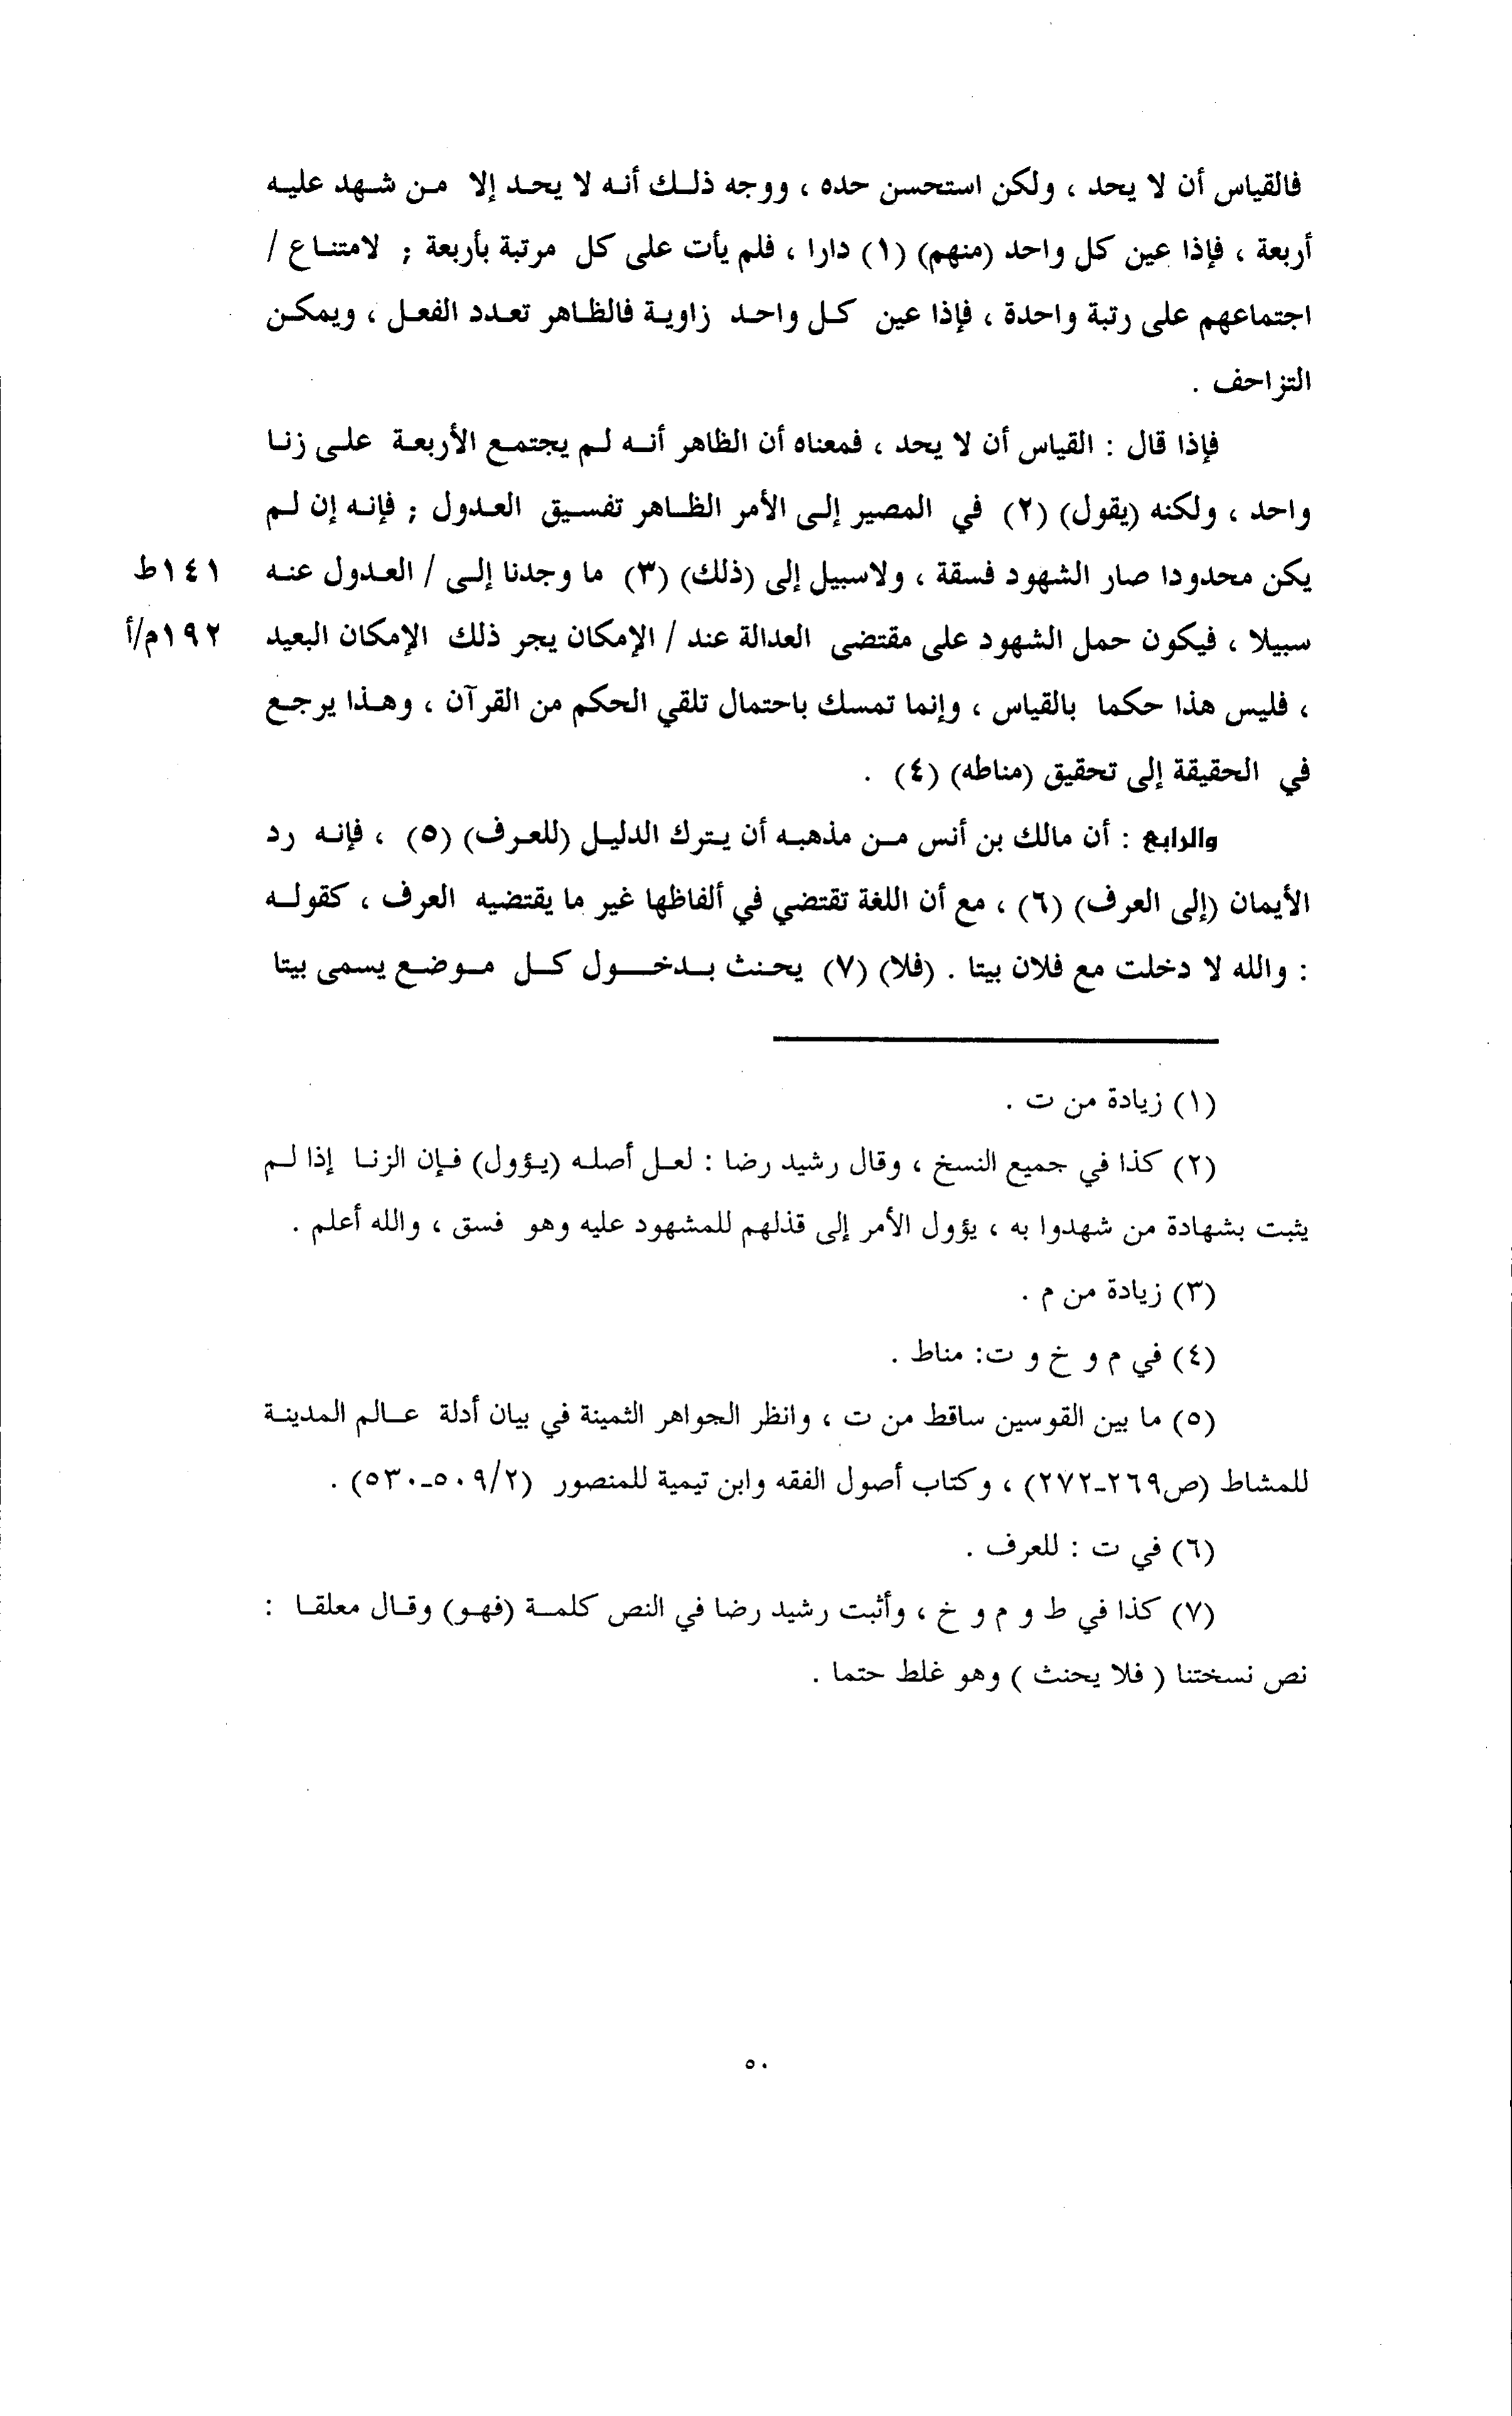 فالقياس أن لا يحد ، ولكن استحسن حده ، ووجه ذلك أنه لا يحد إلا من شهد عليه
أربعة ، فإذا عين كل واحد (منهم) (١) دارا ، فلم يأت على كل مرتبة بأربعة ; لامتناع /
اجتماعهم على رتبة واحدة ، فإذا عين كل واحد زاوية فالظاهر تعدد الفعل ، ويمكن
التزاحف .
فإذا قال : القياس أن لا يحد ، فمعناه أن الظاهر أنه لم يجتمع الأربعة على زنا
واحد ، ولكنه (يقول) (٢) في المصير إلى الأمر الظاهر تفسيق العدول ; فإنه إن لم
يكن محدودا صار الشهود فسقة ، ولاسبيل إلى (ذلك) (٣) ما وجدنا إلى / العدول عنه ١٤١ط
سبيلا ، فيكون حمل الشهود على مقتضى العدالة عند / الإمكان يجر ذلك الإمكان البعيد ١٩٢م/أ
، فليس هذا حكما بالقياس ، وإنما تمسك باحتمال تلقي الحكم من القرآن ، وهذا يرجع
في الحقيقة إلى تحقيق (مناطه) (٤) .
والرابع : أن مالك بن أنس من مذهبه أن يترك الدليل (للعرف) (٥) ، فإنه رد
الأيمان (إلى العرف) (٦) ، مع أن اللغة تقتضي في ألفاظها غير ما يقتضيه العرف ، كقوله
: والله لا دخلت مع فلان بيتا . (فلا) (٧) يحنث بدخول كل موضع يسمى بيتا
(١) زيادة من ت .
(٢) كذا في جميع النسخ ، وقال رشيد رضا : لعل أصله (يؤول) فإن الزنا إذا لم
يثبت بشهادة من شهدوا به ، يؤول الأمر إلى قذلهم للمشهود عليه وهو فسق ، والله أعلم .
(٣) زيادة من م .
(٤) في م و خ و ت: مناط .
(٥) ما بين القوسين ساقط من ت ، وانظر الجواهر الثمينة في بيان أدلة عالم المدينة
للمشاط (ص٢٦٩-٢٧٢) ، وكتاب أصول الفقه وابن تيمية للمنصور (٥٠٩/٢-٥٣٠) .
(٦) في ت : للعرف .
(٧) كذا في ط و م و خ ، وأثبت رشيد رضا في النص كلمة (فهو) وقال معلقا :
نص نسختنا ( فلا يحنث ) وهو غلط حتما .
٥٠